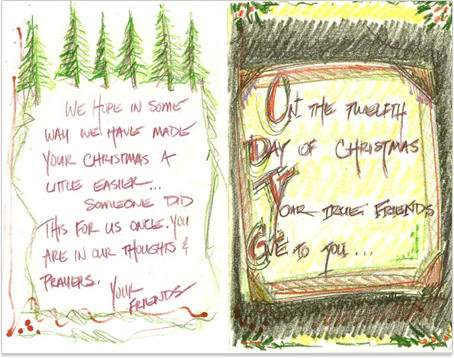 WE HOPE IN SOME
WAY WE HAVE MADE
YOUR CHRISTMAS A
LITTLE EASIER...
SOMEONE DID
THIS FOR US ONCE. YOU
ARE IN OUR THOUGHTS &
PRAYERS.
YOUR
FRIENDS
ON THE TWELFTH
DAY OF CHRISTMAS
YOUR TRUE FRIENDS
GIVE TO YOU...